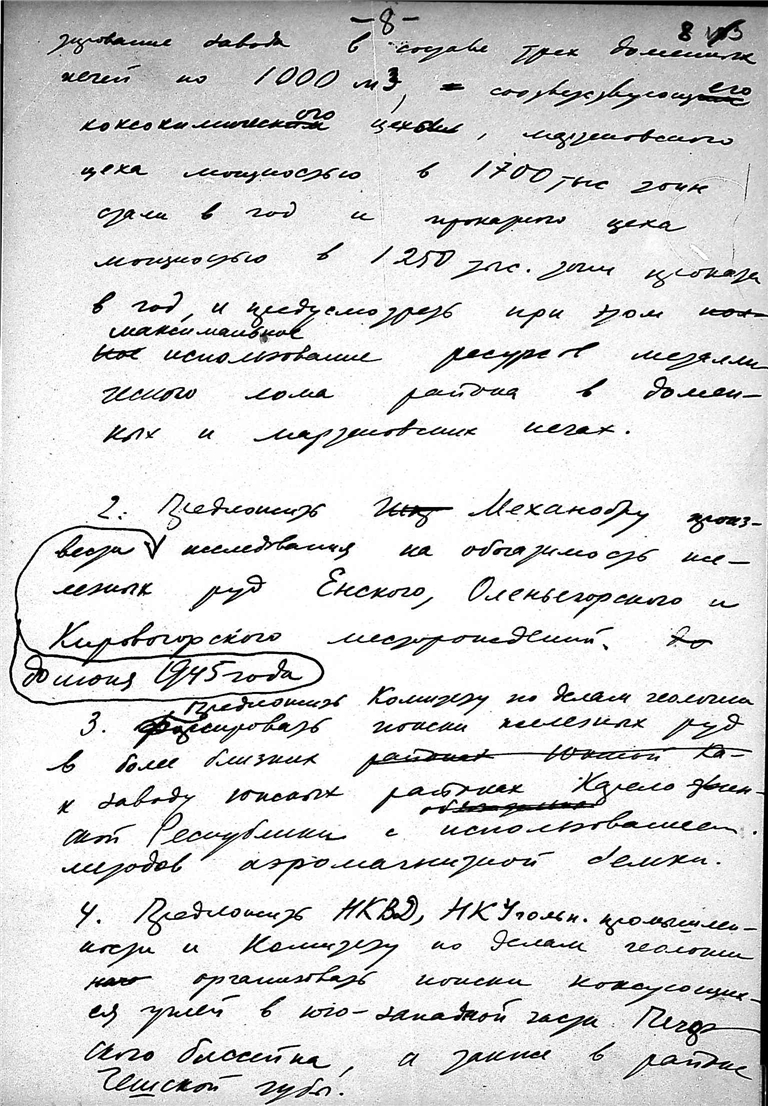 -8-
8
зирование завода в составе трех доменных
печей по 1000 м3, соответствующего
коксохимического цеха, мартеновского
цеха мощностью в 1700 тыс тонн
стали в год и прокатного цеха
мощностью в 1250 тыс. тонн проката
в год, и предусмотреть при этом
максимальное
использование ресурсов металли
ческого лома района в домен-
ных и мартеновских печах.
2. Предложить Механобру произ-
вести исследования на обогатимость же-
лезных руд Енского, Оленьегорского и
Кировогорского месторождений. до
до июня 1945 года
Предложить Комитету по делам геологии
3. форсировать поиски железных руд
в более близких районах Южной Ка-
к заводу южных районах Карело Фин-
ской Республики с использованием
методов аэромагнитной съемки.
4. Предложить НКВД, НКУгольн. промышлен-
ности и Комитету по делам геологии
организовать поиски коксующих-
ся углей в юго-западной части Печор
ского бассейна, а также в районе
Чешской губы.